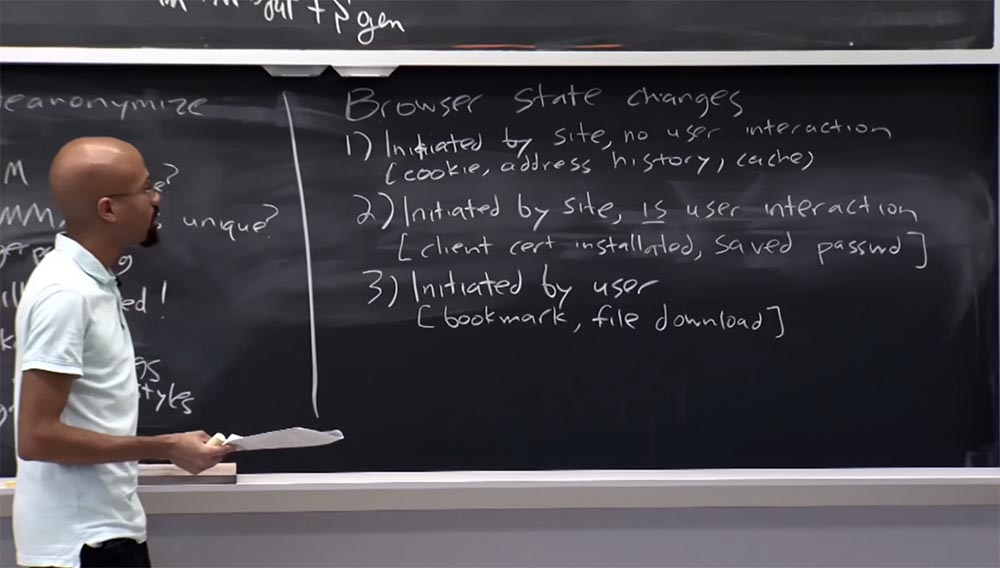 + Pgen
eanonymize
M
MM
unique?
ed!
styles
Browser state changes
1) Initiated by site, no user interaction
[cookie, address history, cache)
2) Initiated by site, IS user interaction
[client cert installated, saved passwd]
3) Initiated by user
[bookmark, file download]